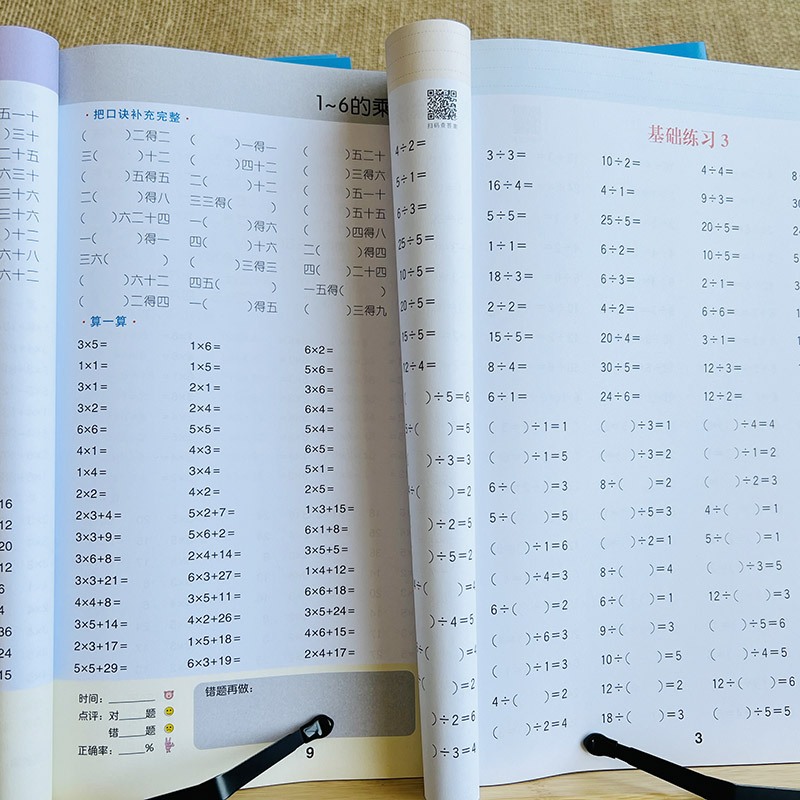 五一十
)三十
二十五
六三十
三十六
三十六
)十二
六十八
六十二
16
12
20
12
6
4
36
24
15
1~6的乘
·把口诀补充完整·
(　　)二得二　(　　)一得一　(　　)五二十
三(　　)十二　(　　)四十二　(　　)三得六
(　　)五得五　二(　　)十二　(　　)五一十
二(　　)得八　三三得(　　)　(　　)五十五
(　　)六二十四　一(　　)得六　(　　)四得八
一(　　)得一　四(　　)十六　二(　　)得四
三六(　　)　(　　)三得三　四(　　)二十四
(　　)六十二　四五(　　)　一五得(　　)
(　　)二得四　一(　　)得五　(　　)三得九
·算一算·
3×5=　1×6=　6×2=
1×1=　1×5=　5×6=
3×1=　2×1=　3×6=
3×2=　2×4=　6×4=
6×6=　5×5=　5×4=
4×1=　4×3=　6×5=
1×4=　3×4=　5×1=
2×2=　4×2=　2×5=
2×3+4=　5×2+7=　1×3+15=
3×3+9=　5×6+2=　6×1+8=
3×6+8=　2×4+14=　3×5+5=
3×3+21=　6×3+27=　1×4+12=
4×4+8=　3×5+11=　6×6+18=
3×5+14=　4×2+26=　3×5+24=
2×3+17=　1×5+18=　4×6+15=
5×5+29=　6×3+19=　2×4+17=
时间：
点评：对　　题
错　　题
正确率：　　%
错题再做：
9
扫码查答案
4÷2=
5÷1=
6÷3=
25÷5=
10÷5=
20÷5=
15÷5=
12÷4=
)÷5=6
÷(　　)=5
)÷3=3
÷(　　)=2
)÷2=5
)÷5=2
÷(　　)=4
)÷4=5
÷(　　)=4
÷(　　)=2
)÷2=6
)÷3=4
基础练习3
3÷3=　10÷2=　4÷4=　8
16÷4=　4÷1=　9÷3=
5÷5=　25÷5=　20÷5=
1÷1=　6÷2=　10÷5=
18÷3=　6÷3=　2÷1=
2÷2=　4÷2=　6÷6=
15÷5=　20÷4=　3÷1=
8÷4=　30÷5=　12÷3=
6÷1=　24÷6=　12÷2=
(　　)÷1=1　(　　)÷3=1　(　　)÷4=4
(　　)÷1=5　(　　)÷3=2　(　　)÷1=2
6÷(　　)=3　8÷(　　)=2　(　　)÷2=3
5÷(　　)=5　(　　)÷5=3　4÷(　　)=1
(　　)÷1=6　(　　)÷2=1　5÷(　　)=1
(　　)÷4=3　8÷(　　)=4　(　　)÷3=5
6÷(　　)=2　6÷(　　)=1　12÷(　　)=3
(　　)÷6=3　9÷(　　)=3　(　　)÷5=6
(　　)÷1=3　10÷(　　)=5　(　　)÷4=5
4÷(　　)=2　12÷(　　)=2　12÷(　　)=6
(　　)÷2=4　18÷(　　)=3　(　　)÷5=5
3